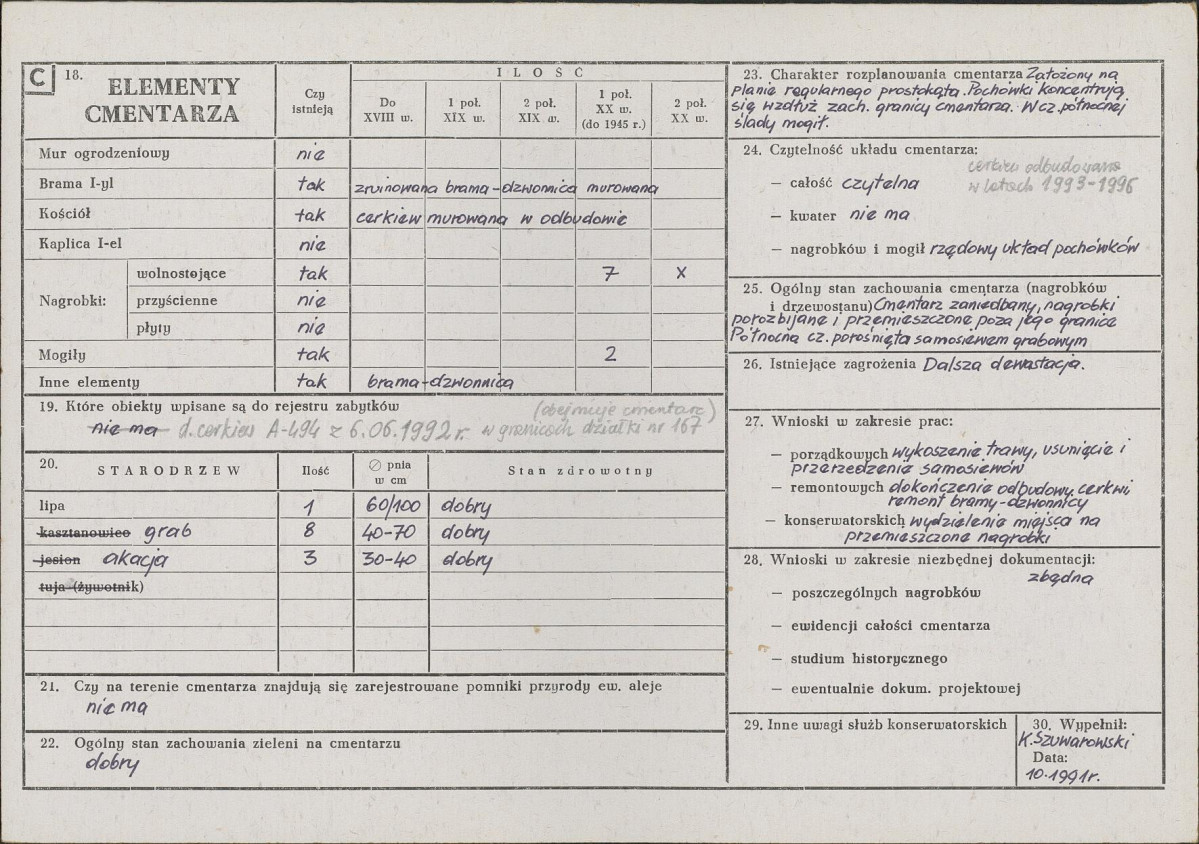 C 18. ELEMENTY CMENTARZA
Czy istnieją
ILOŚĆ
Do XVIII w.
1 poł. XIX w.
2 poł. XIX w.
1 poł. XX w. (do 1945 r.)
2 poł. XX w.
Mur ogrodzeniowy nie
Brama I-yl tak zruinowana brama-dzwonnica murowana
Kościół tak cerkiew murowana w odbudowie
Kaplica I-el nie
Nagrobki: wolnostojące tak 7 x
przyścienne nie
płyty nie
Mogiły tak 2
Inne elementy tak brama-dzwonnica
19. Które obiekty wpisane są do rejestru zabytków (obejmuje cmentarz)
nie ma d. cerkiew A-494 z 6.06.1992 r. w granicach działki nr 167
20. STARODRZEW Ilość ∅ pnia w cm Stan zdrowotny
lipa 1 60/100 dobry
kasztanowiec grab 8 40-70 dobry
jesion akacja 3 30-40 dobry
tuja (żywotnik)
21. Czy na terenie cmentarza znajdują się zarejestrowane pomniki przyrody ew. aleje
nie ma
22. Ogólny stan zachowania zieleni na cmentarzu
dobry
23. Charakter rozplanowania cmentarza Założony na
planie regularnego prostokąta. Pochówki koncentrują
się wzdłuż zach. granicy cmentarza. W cz. północnej
ślady mogił.
24. Czytelność układu cmentarza:
cerkiew odbudowana
w latach 1993-1996
— całość czytelna
— kwater nie ma
— nagrobków i mogił rzędowy układ pochówków
25. Ogólny stan zachowania cmentarza (nagrobków
i drzewostanu) Cmentarz zaniedbany, nagrobki
porozbijane i przemieszczone poza jego granice
Północna cz. porośnięta samosiewem grabowym
26. Istniejące zagrożenia Dalsza dewastacja.
27. Wnioski w zakresie prac:
— porządkowych wykoszenie trawy, usunięcie i
przerzedzenie samosiewów
— remontowych dokończenie odbudowy cerkwi
remont bramy-dzwonnicy
— konserwatorskich wydzielenie miejsca na
przemieszczone nagrobki
28. Wnioski w zakresie niezbędnej dokumentacji:
zbędna
— poszczególnych nagrobków
— ewidencji całości cmentarza
— studium historycznego
— ewentualnie dokum. projektowej
29. Inne uwagi służb konserwatorskich
30. Wypełnił:
K. Szuwarowski
Data:
10.1991r.